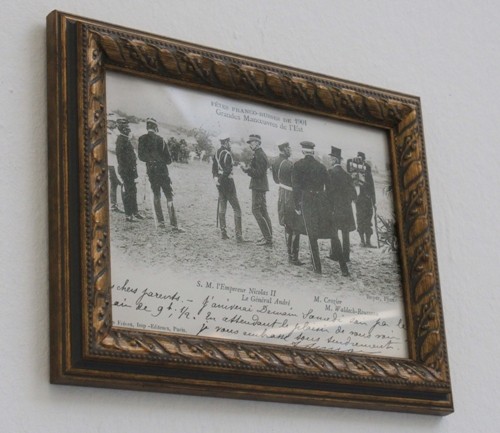 FÊTES FRANCO-RUSSES DE 1901
Grandes Manœuvres de l'Est
S. M. l'Empereur Nicolas II
Le Général André
M. Crozier
M. Waldeck-Rousseau
Phot.
chers parents. - J'arriverai Demain Samedi par le
train de 9h ½! En attendant le plaisir de vous voir
je vous embrasse tous tendrement
Imp.-Éditeur, Paris.